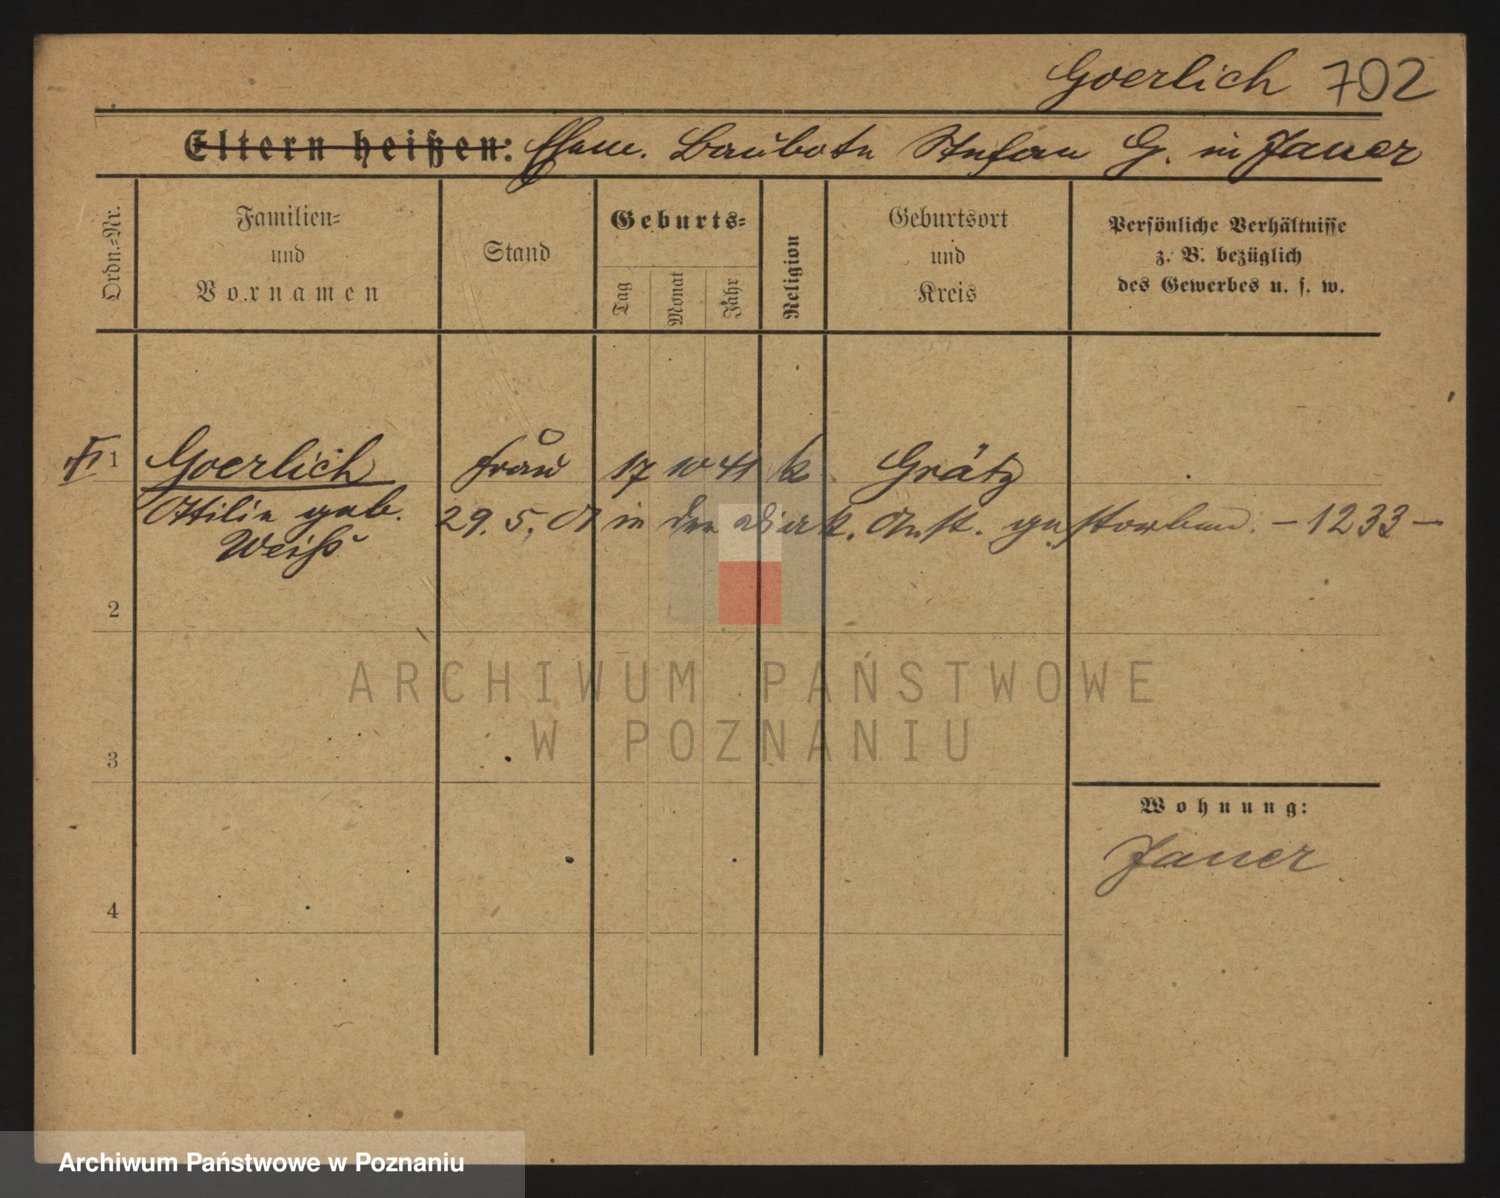 Goerlich 702
Eltern heißen: Ehem. Baubote Stefan G. in Jauer
Ordn.-Nr.
Familien-
und
Vornamen
Stand
Geburts-
Tag
Monat
Jahr
Religion
Geburtsort
und
Kreis
Persönliche Verhältnisse
z. B. bezüglich
des Gewerbes u. s. w.
1 Goerlich Frau 17 10 41 k. Grätz
Ottilie geb. 29. 5. 01 in der Diak. Anst. gestorben. - 1233 -
Weiß
2
ARCHIWUM PAŃSTWOWE
W POZNANIU
3
Wohnung:
Jauer
4
Archiwum Państwowe w Poznaniu